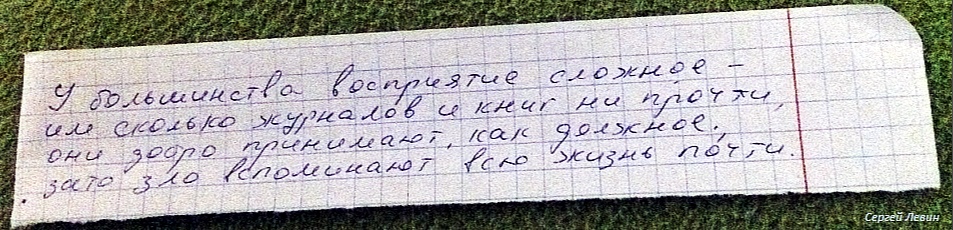 У большинства восприятие сложное –
им сколько журналов и книг ни прочти,
они добро принимают, как должное,
зато зло вспоминают всю жизнь почти.
Сергей Левин